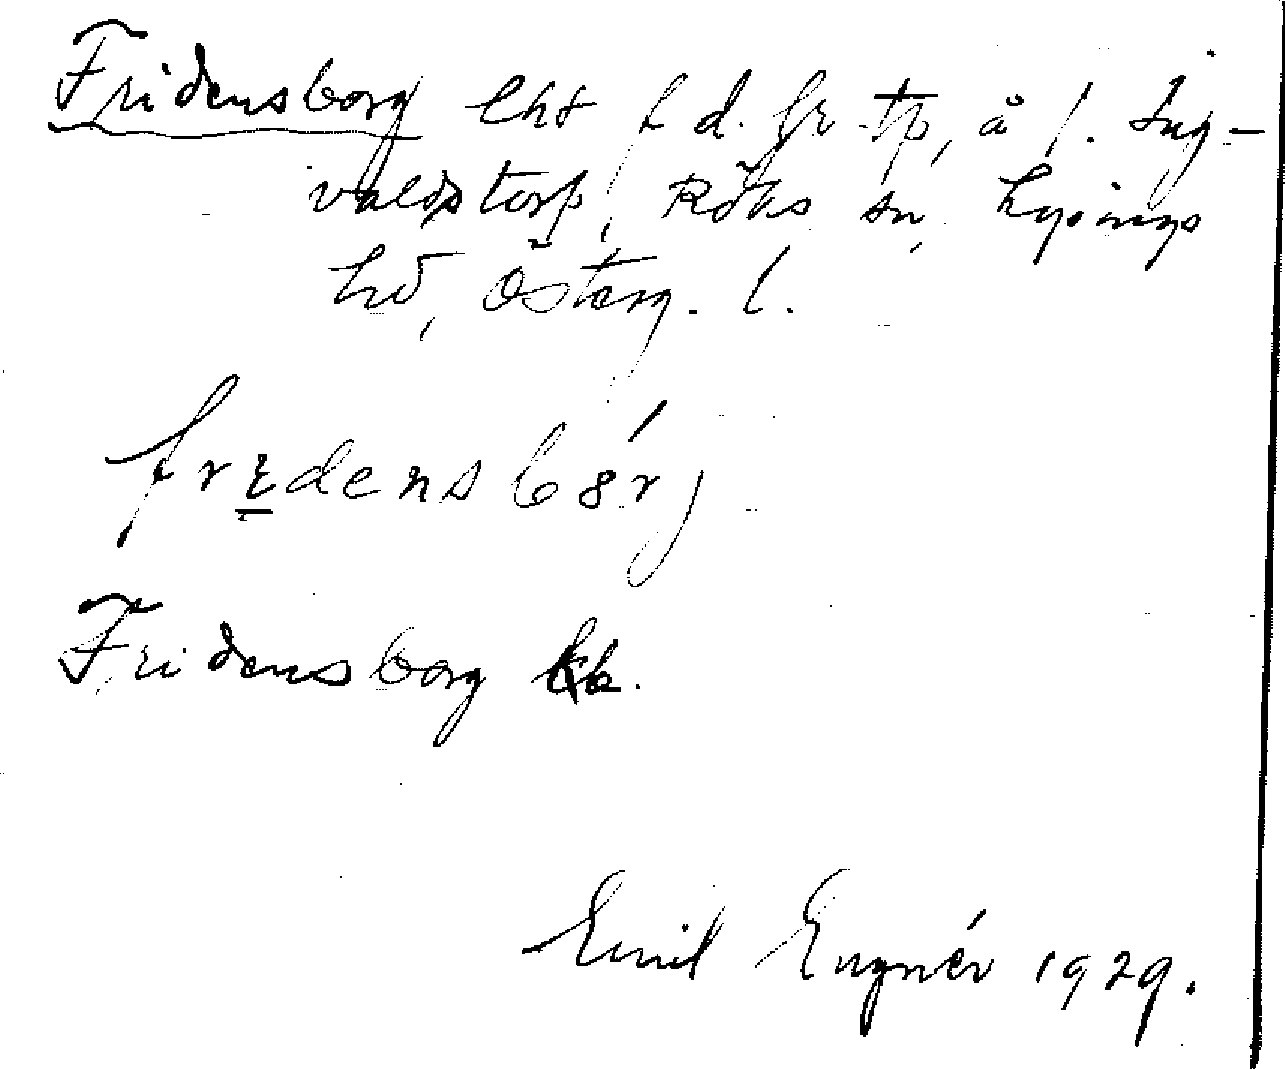 Fridensborg lht f d. fr-tp, å f. Ing-
valdstorp, Röks sn, Lysings
hd, Österg. l.
fredensbórj
Fridensborg kb.
Emil Engnér 1929.